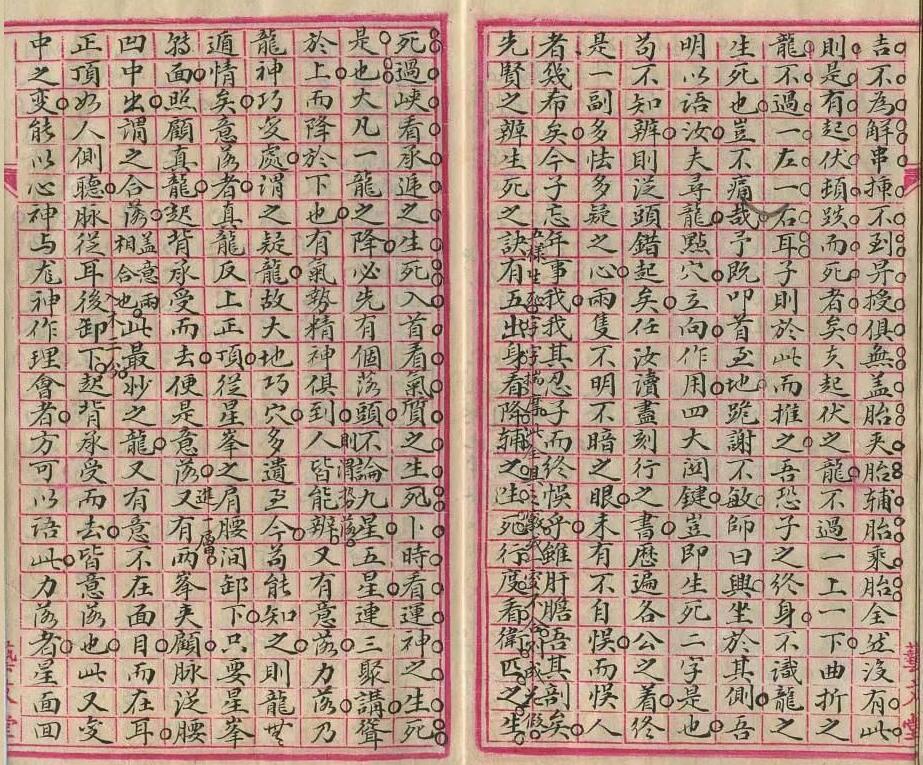 吉不為解串揷不到昇授俱無盖胎夾胎輔胎乘胎全然没有此
則是有起伏頓跌而死者矣夫起伏之龍不過一上一下曲折之
龍不過一左一右耳子則於此而推之吾恐子之終身不識龍之
生死也豈不痛哉予既叩首至地跪謝不敏師曰興坐於其側吾
明以語汝夫尋龍點穴立向作用四大関鍵豈即生死二字是也
苟不知辨則泛頭錯起矣任汝讀盡刻行之書歴遍各公之着終
是一副多怯多疑之心雨隻不明不暗之眼未有不自悞而悞人
者幾希矣今子忘年事我我其忍子而終悞乎雖肝膽吾其剖矣
先賢之辨生死之訣有五出身看降輔之生死行度看衛匹之生
死過峡看承逓之生死入首看氣質之生死卜時看運神之生死
是也大凡一龍之降必先有個落頭不論九星五星連三聚講聳
於上而降於下也有氣勢精神俱到人皆能辨又有意落力落乃
龍神巧変處謂之疑龍故大地巧穴多遺至今苟能知之則龍無
遁情矣意落者真龍反上正頂従星峯之肩腰間卸下只要星峯
轉面照顧真龍起背承受而去便是意落又有両峯夹顧脉泛腰
凹中出謂之合落
盖意兩
相合也
此最妙之龍又有意不在面目而在耳
正頂如人側聽脉従耳後卸下起背承受而去皆意落也此又変
中之変能以心神与龙神作理會者方可以語此力落者星面回